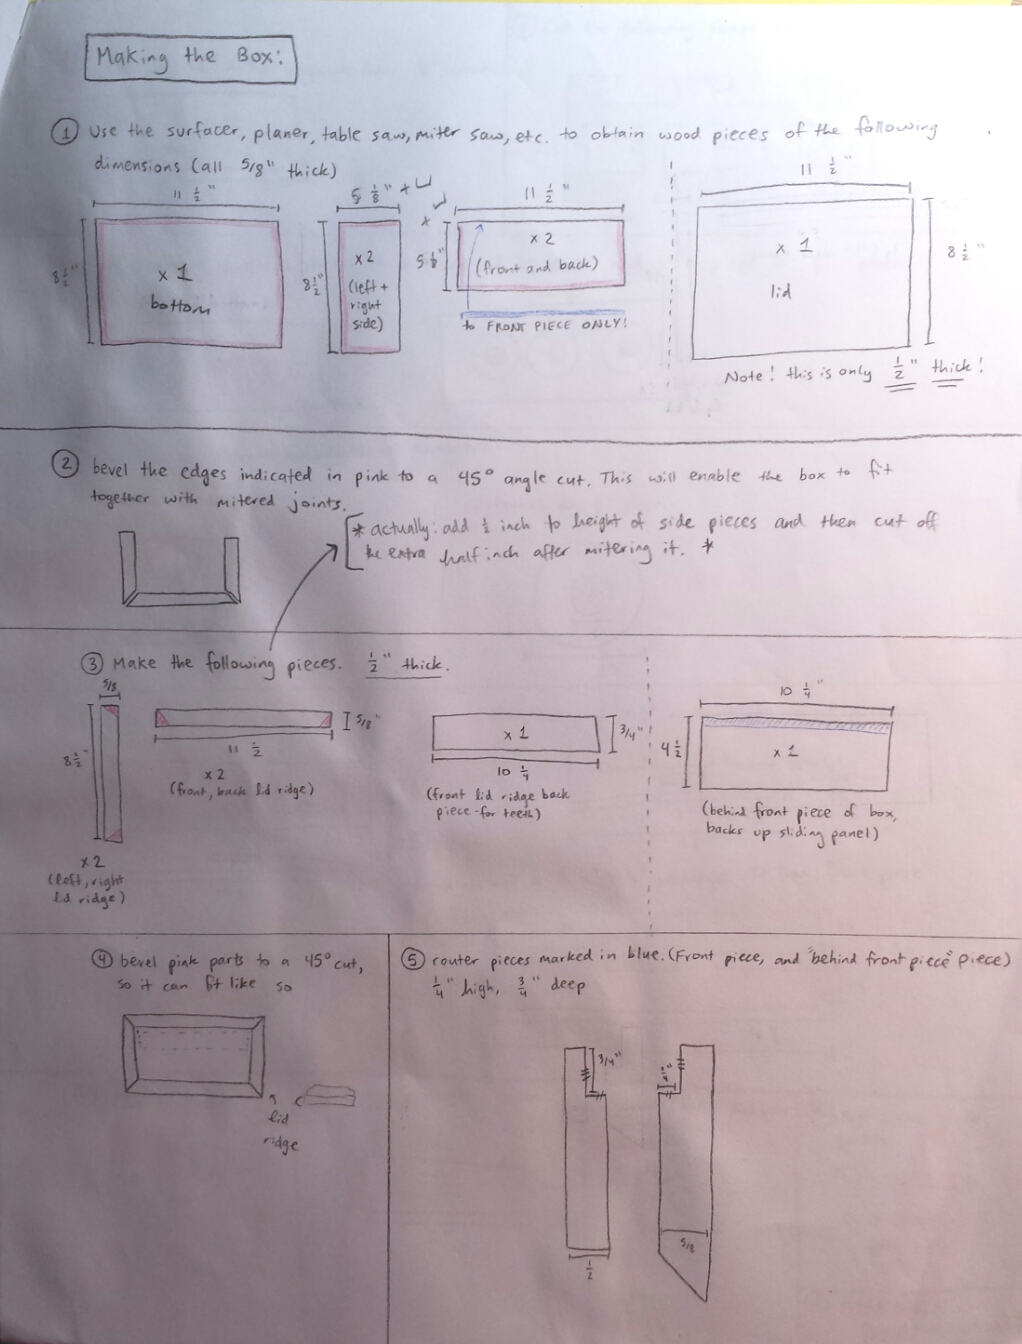 Making the Box:
① Use the surfacer, planer, table saw, miter saw, etc. to obtain wood pieces of the following
dimensions (all 5/8" thick)
11 1/2"
8 1/2"
x 1
bottom
5 1/8"
8 1/2"
x 2
(left +
right
side)
11 1/2"
5 1/8"
x 2
(front and back)
to FRONT PIECE ONLY!
11 1/2"
x 1
lid
8 1/2"
Note! this is only 1/2" thick!
② bevel the edges indicated in pink to a 45° angle cut. This will enable the box to fit
together with mitered joints.
* actually: add 1/2 inch to height of side pieces and then cut off
the extra half inch after mitering it. *
③ Make the following pieces. 1/2" thick.
5/8
8 1/2"
x 2
(left, right
lid ridge)
5/8"
11 1/2
x 2
(front, back lid ridge)
x 1
3/4"
10 1/4
(front lid ridge back
piece-for teeth)
10 1/4"
4 1/2
x 1
(behind front piece of box,
backs up sliding panel)
④ bevel pink parts to a 45° cut,
so it can fit like so
lid
ridge
⑤ router pieces marked in blue. (Front piece, and "behind front piece" piece)
1/4" high, 3/4" deep
3/4"
1/2
1/4"
5/8